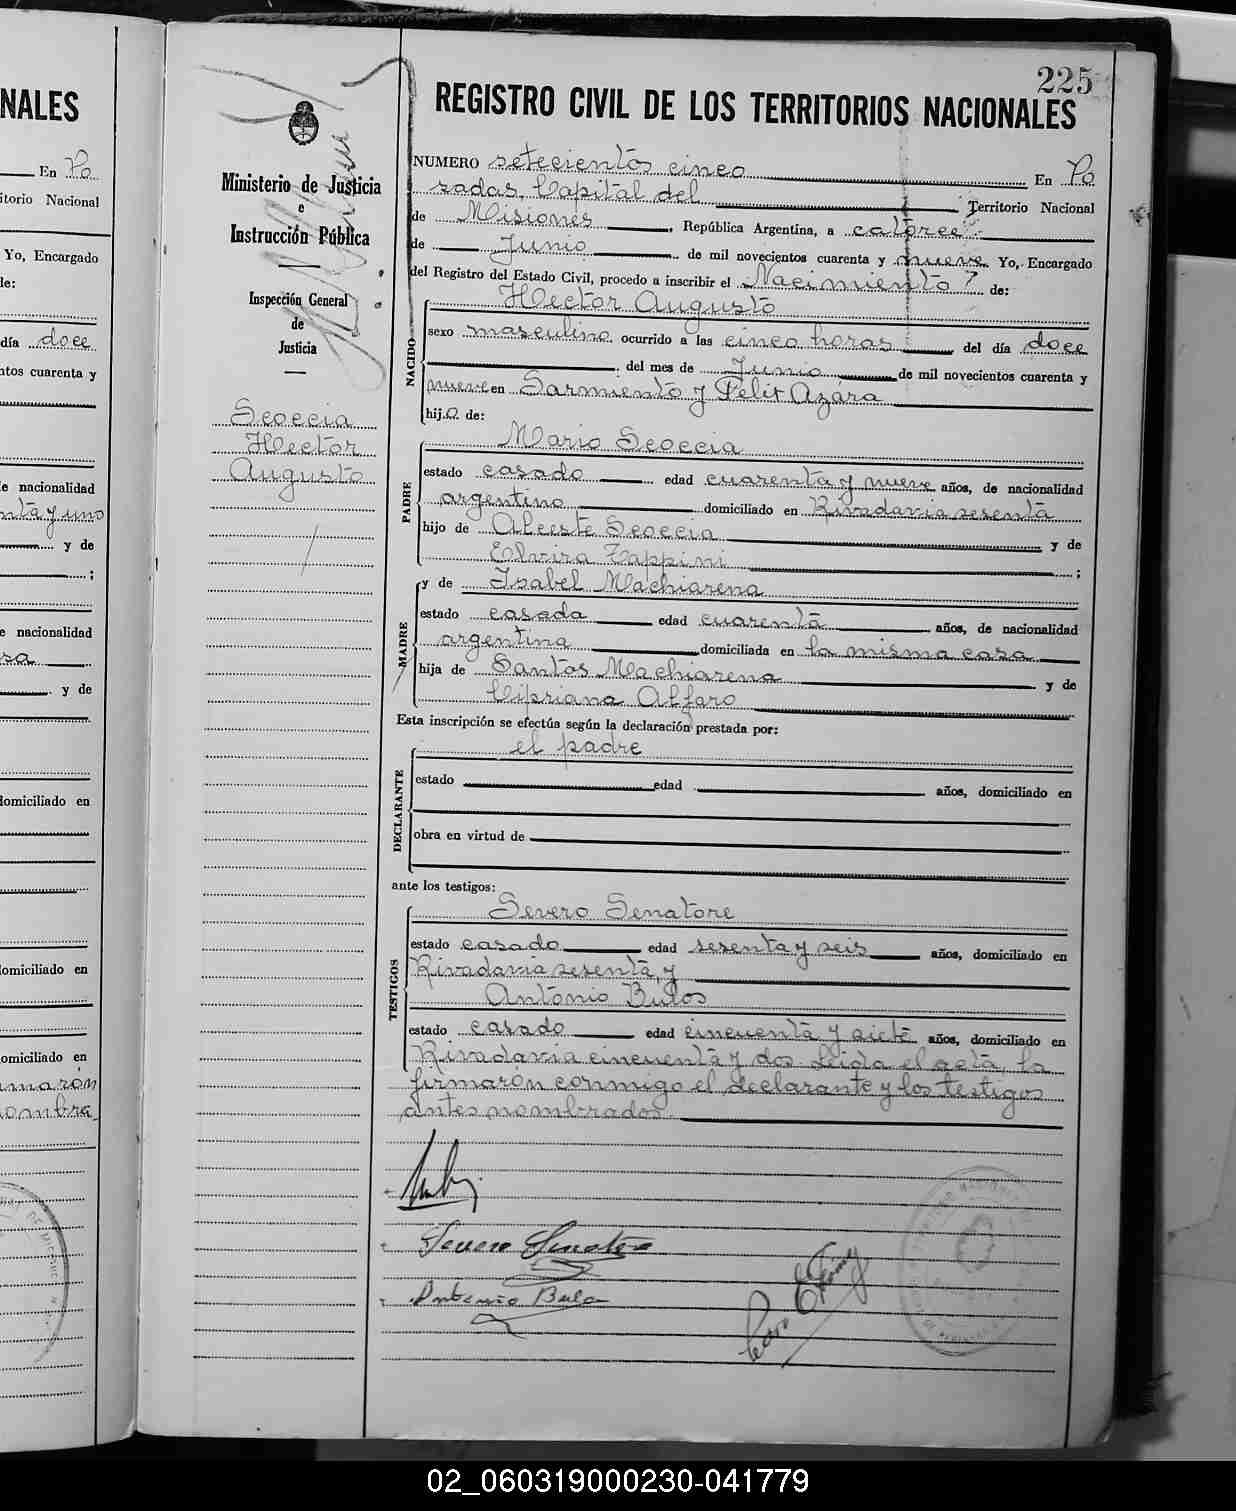 NALES
En Po
itorio Nacional
Yo, Encargado
de:
día doce
ntos cuarenta y
de nacionalidad
nta y uno
y de
;
e nacionalidad
y de
domiciliado en
domiciliado en
omiciliado en
maron
ombra
225
REGISTRO CIVIL DE LOS TERRITORIOS NACIONALES
Ministerio de Justicia
e
Instrucción Pública
Inspección General
de
Justicia
Scoccia
Hector
Augusto
NUMERO setecientos cinco En Po
sadas, Capital del Territorio Nacional
de Misiones, República Argentina, a catorce
de Junio de mil novecientos cuarenta y nueve Yo, Encargado
del Registro del Estado Civil, procedo a inscribir el Nacimiento de:
NACIDO
Hector Augusto
sexo masculino ocurrido a las cinco horas del día doce
del mes de Junio de mil novecientos cuarenta y
nueve en Sarmiento y Felix Azara
hijo de:
PADRE
Mario Scoccia
estado casado edad cuarenta y nueve años, de nacionalidad
argentino domiciliado en Rivadavia sesenta
hijo de Alceste Scoccia y de
Elvira Zappini ;
MADRE
y de Isabel Machiarena
estado casada edad cuarenta años, de nacionalidad
argentina domiciliada en la misma casa
hija de Santos Machiarena y de
Cipriana Alfaro
Esta inscripción se efectúa según la declaración prestada por:
DECLARANTE
el padre
estado edad años, domiciliado en
obra en virtud de
ante los testigos:
TESTIGOS
Severo Senatore
estado casado edad sesenta y seis años, domiciliado en
Rivadavia sesenta, y
Antonio Bulos
estado casado edad cincuenta y siete años, domiciliado en
Rivadavia cincuenta y dos. Leida el acta, la
firmaron conmigo el declarante y los testigos
antes nombrados.
Severo Senatore
Antonio Bulo
02_060319000230-041779